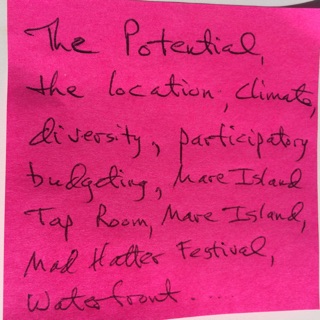 The Potential,
the location, climate,
diversity, participatory
budgeting, Mare Island
Tap Room, Mare Island,
Mad Hatter Festival,
Waterfront.....